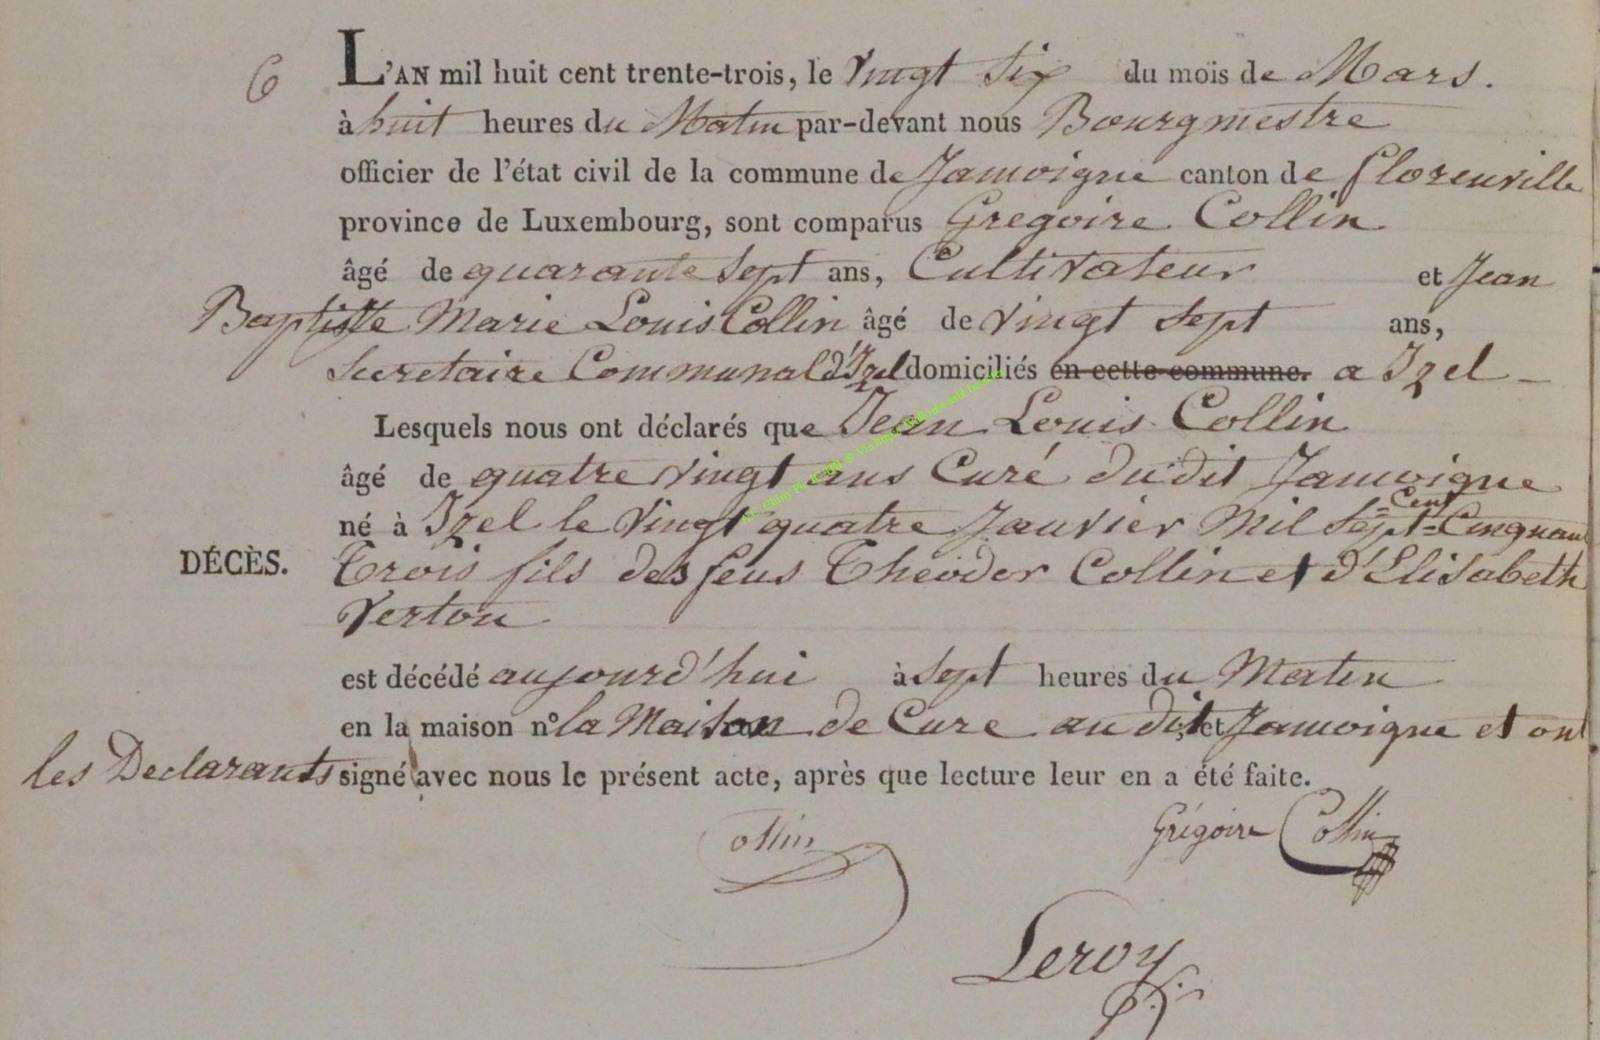 6
L'AN mil huit cent trente-trois, le Vingt Six du mois de Mars.
à huit heures du Matin par-devant nous Bourgmestre
officier de l'état civil de la commune de Jamoigne canton de florenville
province de Luxembourg, sont comparus Gregoire Collin
âgé de quarante Sept ans, Cultivateur et Jean
Baptiste Marie Louis Collin âgé de Vingt Sept ans,
Secretaire Communal d'Izel domiciliés en cette commune. a Izel -
Lesquels nous ont déclarés que Jean Louis Collin
âgé de quatre Vingt ans Curé du dit Jamoigne
né à Izel le Vingt quatre Janvier Mil Sept = Cent Cinquant
Trois fils des feus Théodor Collin et d'Elisabeth
Verton
est décédé aujourd'hui à Sept heures du Matin
en la maison n° la Maison de Cure au dit, et Jamoigne et ont
DÉCÈS.
les Declarants signé avec nous le présent acte, après que lecture leur en a été faite.
Collin
Grégoire Collin
Leroy